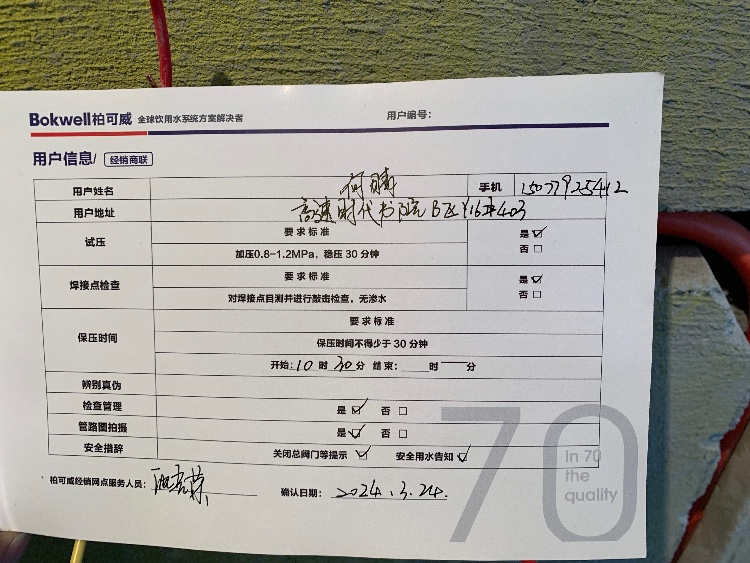 Bokwell柏可威 全球饮用水系统方案解决者 用户编号：
用户信息/ 经销商联
用户姓名 何晴 手机
用户地址 高速时代书院B区16#403
试压 要求标准 是☑
加压0.8-1.2MPa，稳压 30 分钟 否☐
焊接点检查 要求标准 是☑
对焊接点目测并进行敲击检查，无渗水 否☐
保压时间 要求标准
保压时间不得少于 30 分钟
开始：10 时 30 分 结束： 时 分
辨别真伪
检查管理 是☑ 否☐
管路图拍摄 是☑ 否☐
安全措辞 关闭总阀门等提示☑ 安全用水告知☑
柏可威经销网点服务人员：
确认日期：2024.3.24.
70
In 70
the
quality